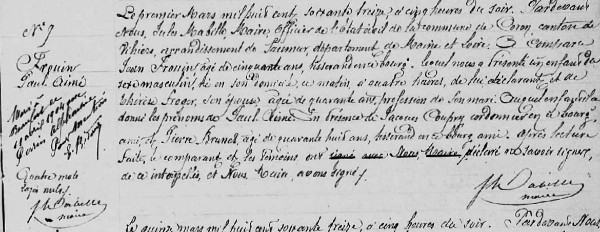 Le premier Mars mil huit cent soixante treize, à cinq heures du soir. Pardevant
N° 7
Nous, Jules Mabille, Maire, officier de l'état civil de la commune de Coron, canton de
Vihiers, arrondissement de Saumur, département de Maine et Loire, a Comparu
Frouin
Paul Aimé
Frouin, âgé de cinquante ans, tisserand en bourg, lequel nous a présenté un enfant du
sexe masculin, né en son domicile, ce matin, à quatre heures, de lui déclarant, et de
Froger, son épouse, âgée de quarante ans, profession de son mari. Auquel enfant il a
donné les prénoms de Paul Aimé. En présence de Jacques cordonnier en bourg
ami, de Pierre Brunet, âgé de quarante huit ans, tisserand en bourg, ami. Après lecture
faite, le comparant et les témoins ont signé avec Nous, Maire déclaré ne savoir signer,
de ce interpellés, et Nous Maire, avons signé.
Quatre mots
rayés nuls.
Jh Mabille
maire
Jh Mabille
maire
Le quinze mars mil huit cent soixante treize, à cinq heures du soir. Pardevant Nous,